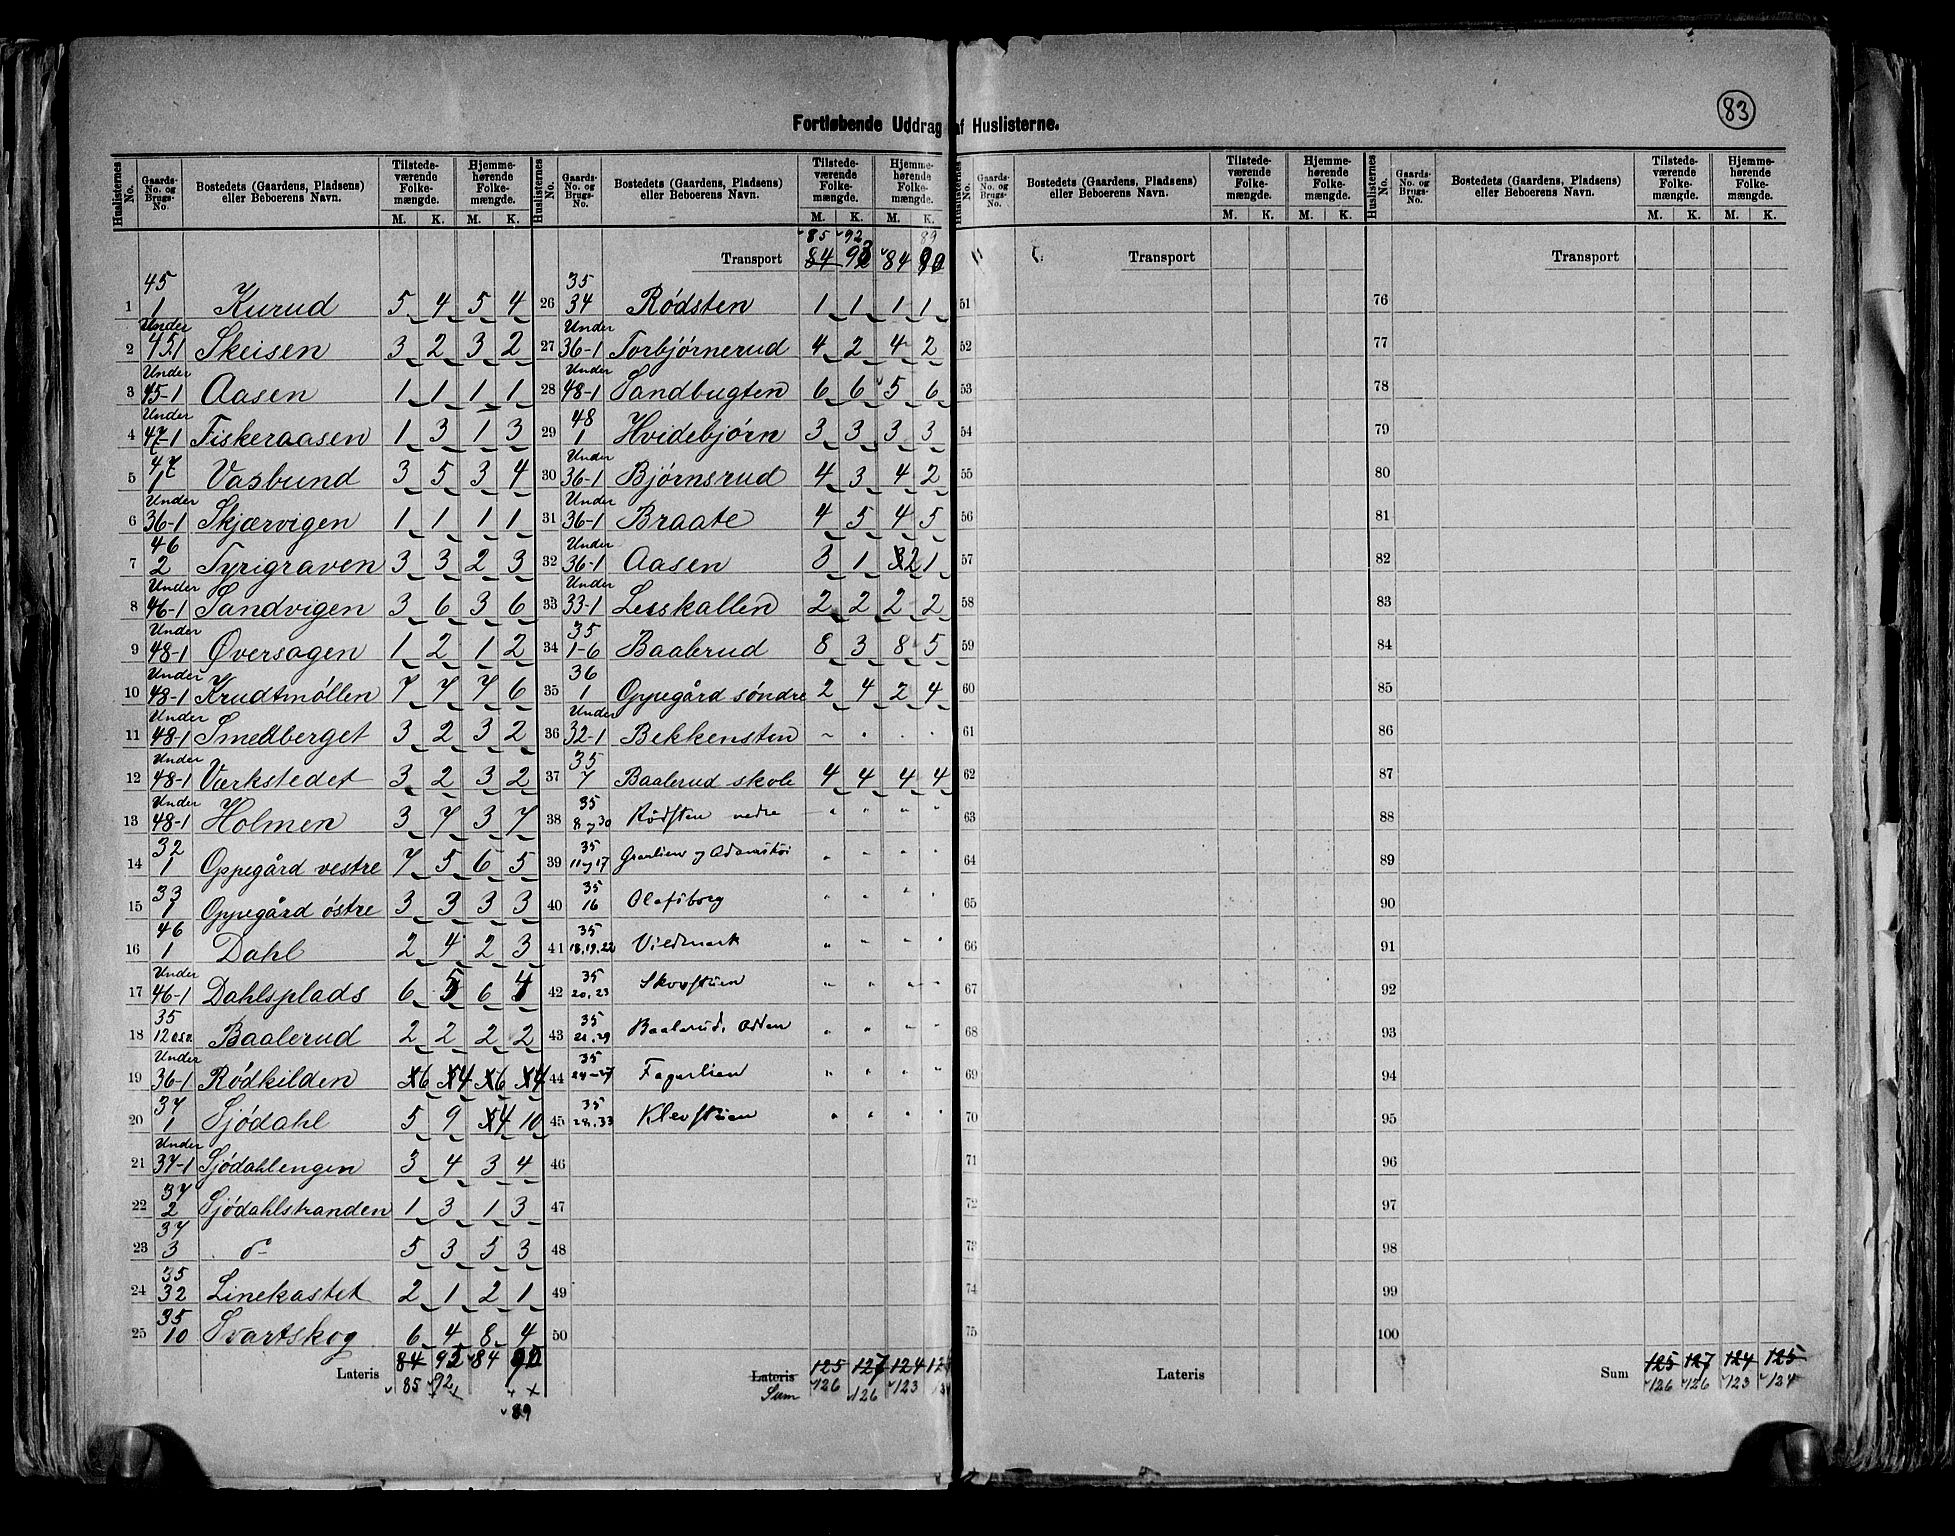 83
Fortløbende Uddrag af Huslisterne.
Huslisternes No. | Gaards-No. og Brugs-No. | Bostedets (Gaardens, Pladsens) eller Beboerens Navn. | Tilstedeværende Folkemængde. M. K. | Hjemmehørende Folkemængde. M. K.
1 | 45 1 | Kurud | 5 4 | 5 4
2 | Under 45.1 | Skeisen | 3 2 | 3 2
3 | Under 45-1 | Aasen | 1 1 | 1 1
4 | Under 47-1 | Fiskeraasen | 1 3 | 1 3
5 | 47 1 | Vasbund | 3 5 | 3 4
6 | Under 36-1 | Skjærvigen | 1 1 | 1 1
7 | 46 2 | Tyrigraven | 3 3 | 2 3
8 | Under 46-1 | Sandvigen | 3 6 | 3 6
9 | Under 48-1 | Øversagen | 1 2 | 1 2
10 | Under 48-1 | Krudtmøllen | 7 7 | 7 6
11 | Under 48-1 | Smedberget | 3 2 | 3 2
12 | Under 48-1 | Værkstedet | 3 2 | 3 2
13 | Under 48-1 | Holmen | 3 7 | 3 7
14 | 32 1 | Oppegård vestre | 7 5 | 6 5
15 | 33 1 | Oppegård östre | 3 3 | 3 3
16 | 46 1 | Dahl | 2 4 | 2 3
17 | Under 46-1 | Dahlsplads | 6 5 | 6 4
18 | 35 12 | Baalerud | 2 2 | 2 2
19 | Under 36-1 | Rödkilden | 6 4 | 6 4
20 | 37 1 | Sjödahl | 5 9 | 4 10
21 | Under 37-1 | Sjödahlengen | 3 4 | 3 4
22 | 37 2 | Sjödahlstranden | 1 3 | 1 3
23 | 37 3 | do | 5 3 | 5 3
24 | 35 32 | Linekastet | 2 1 | 2 1
25 | 35 10 | Svartskog | 6 4 | 8 4
Lateris 84 92 84
85 92
89
Huslisternes No. | Gaards-No. og Brugs-No. | Bostedets (Gaardens, Pladsens) eller Beboerens Navn. | Tilstedeværende Folkemængde. M. K. | Hjemmehørende Folkemængde. M. K.
85 92 89
Transport 84 92 84 90
26 | 35 34 | Rødsten | 1 1 | 1 1
27 | Under 36-1 | Torbjørnerud | 4 2 | 4 2
28 | Under 48-1 | Sandbugten | 6 6 | 5 6
29 | 48 1 | Hvidebjørn | 3 3 | 3 3
30 | Under 36-1 | Bjørnsrud | 4 3 | 4 2
31 | Under 36-1 | Braate | 4 5 | 4 5
32 | Under 36-1 | Aasen | 3 1 | 2 1
33 | Under 33-1 | Leiskallen | 2 2 | 2 2
34 | 35 1-6 | Baalerud | 8 3 | 8 5
35 | 36 1 | Oppegård söndre | 2 4 | 2 4
36 | Under 32-1 | Bekkensten | - - | - -
37 | 35 7 | Baalerud skole | 4 4 | 4 4
38 | 35 8 og 30 | Rödsten nedre | " " | " "
39 | 35 11 og 17 | Granlien og | " " | " "
40 | 35 16 | Olafsborg | " " | " "
41 | 35 18.19.22 | Vildmark | " " | " "
42 | 35 20.23 | Skovstuen | " " | " "
43 | 35 21.29 | Baalerud, Odden | " " | " "
44 | 35 24-27 | Fagerlien | " " | " "
45 | 35 28.33 | Klevstuen | " " | " "
46
47
48
49
50
Lateris 125 127 124 125
Sum 126 126 123 124
Huslisternes No. | Gaards-No. og Brugs-No. | Bostedets (Gaardens, Pladsens) eller Beboerens Navn. | Tilstedeværende Folkemængde. M. K. | Hjemmehørende Folkemængde. M. K.
Transport
51
52
53
54
55
56
57
58
59
60
61
62
63
64
65
66
67
68
69
70
71
72
73
74
75
Lateris
Huslisternes No. | Gaards-No. og Brugs-No. | Bostedets (Gaardens, Pladsens) eller Beboerens Navn. | Tilstedeværende Folkemængde. M. K. | Hjemmehørende Folkemængde. M. K.
Transport
76
77
78
79
80
81
82
83
84
85
86
87
88
89
90
91
92
93
94
95
96
97
98
99
100
Sum 125 127 124 125
126 126 123 124